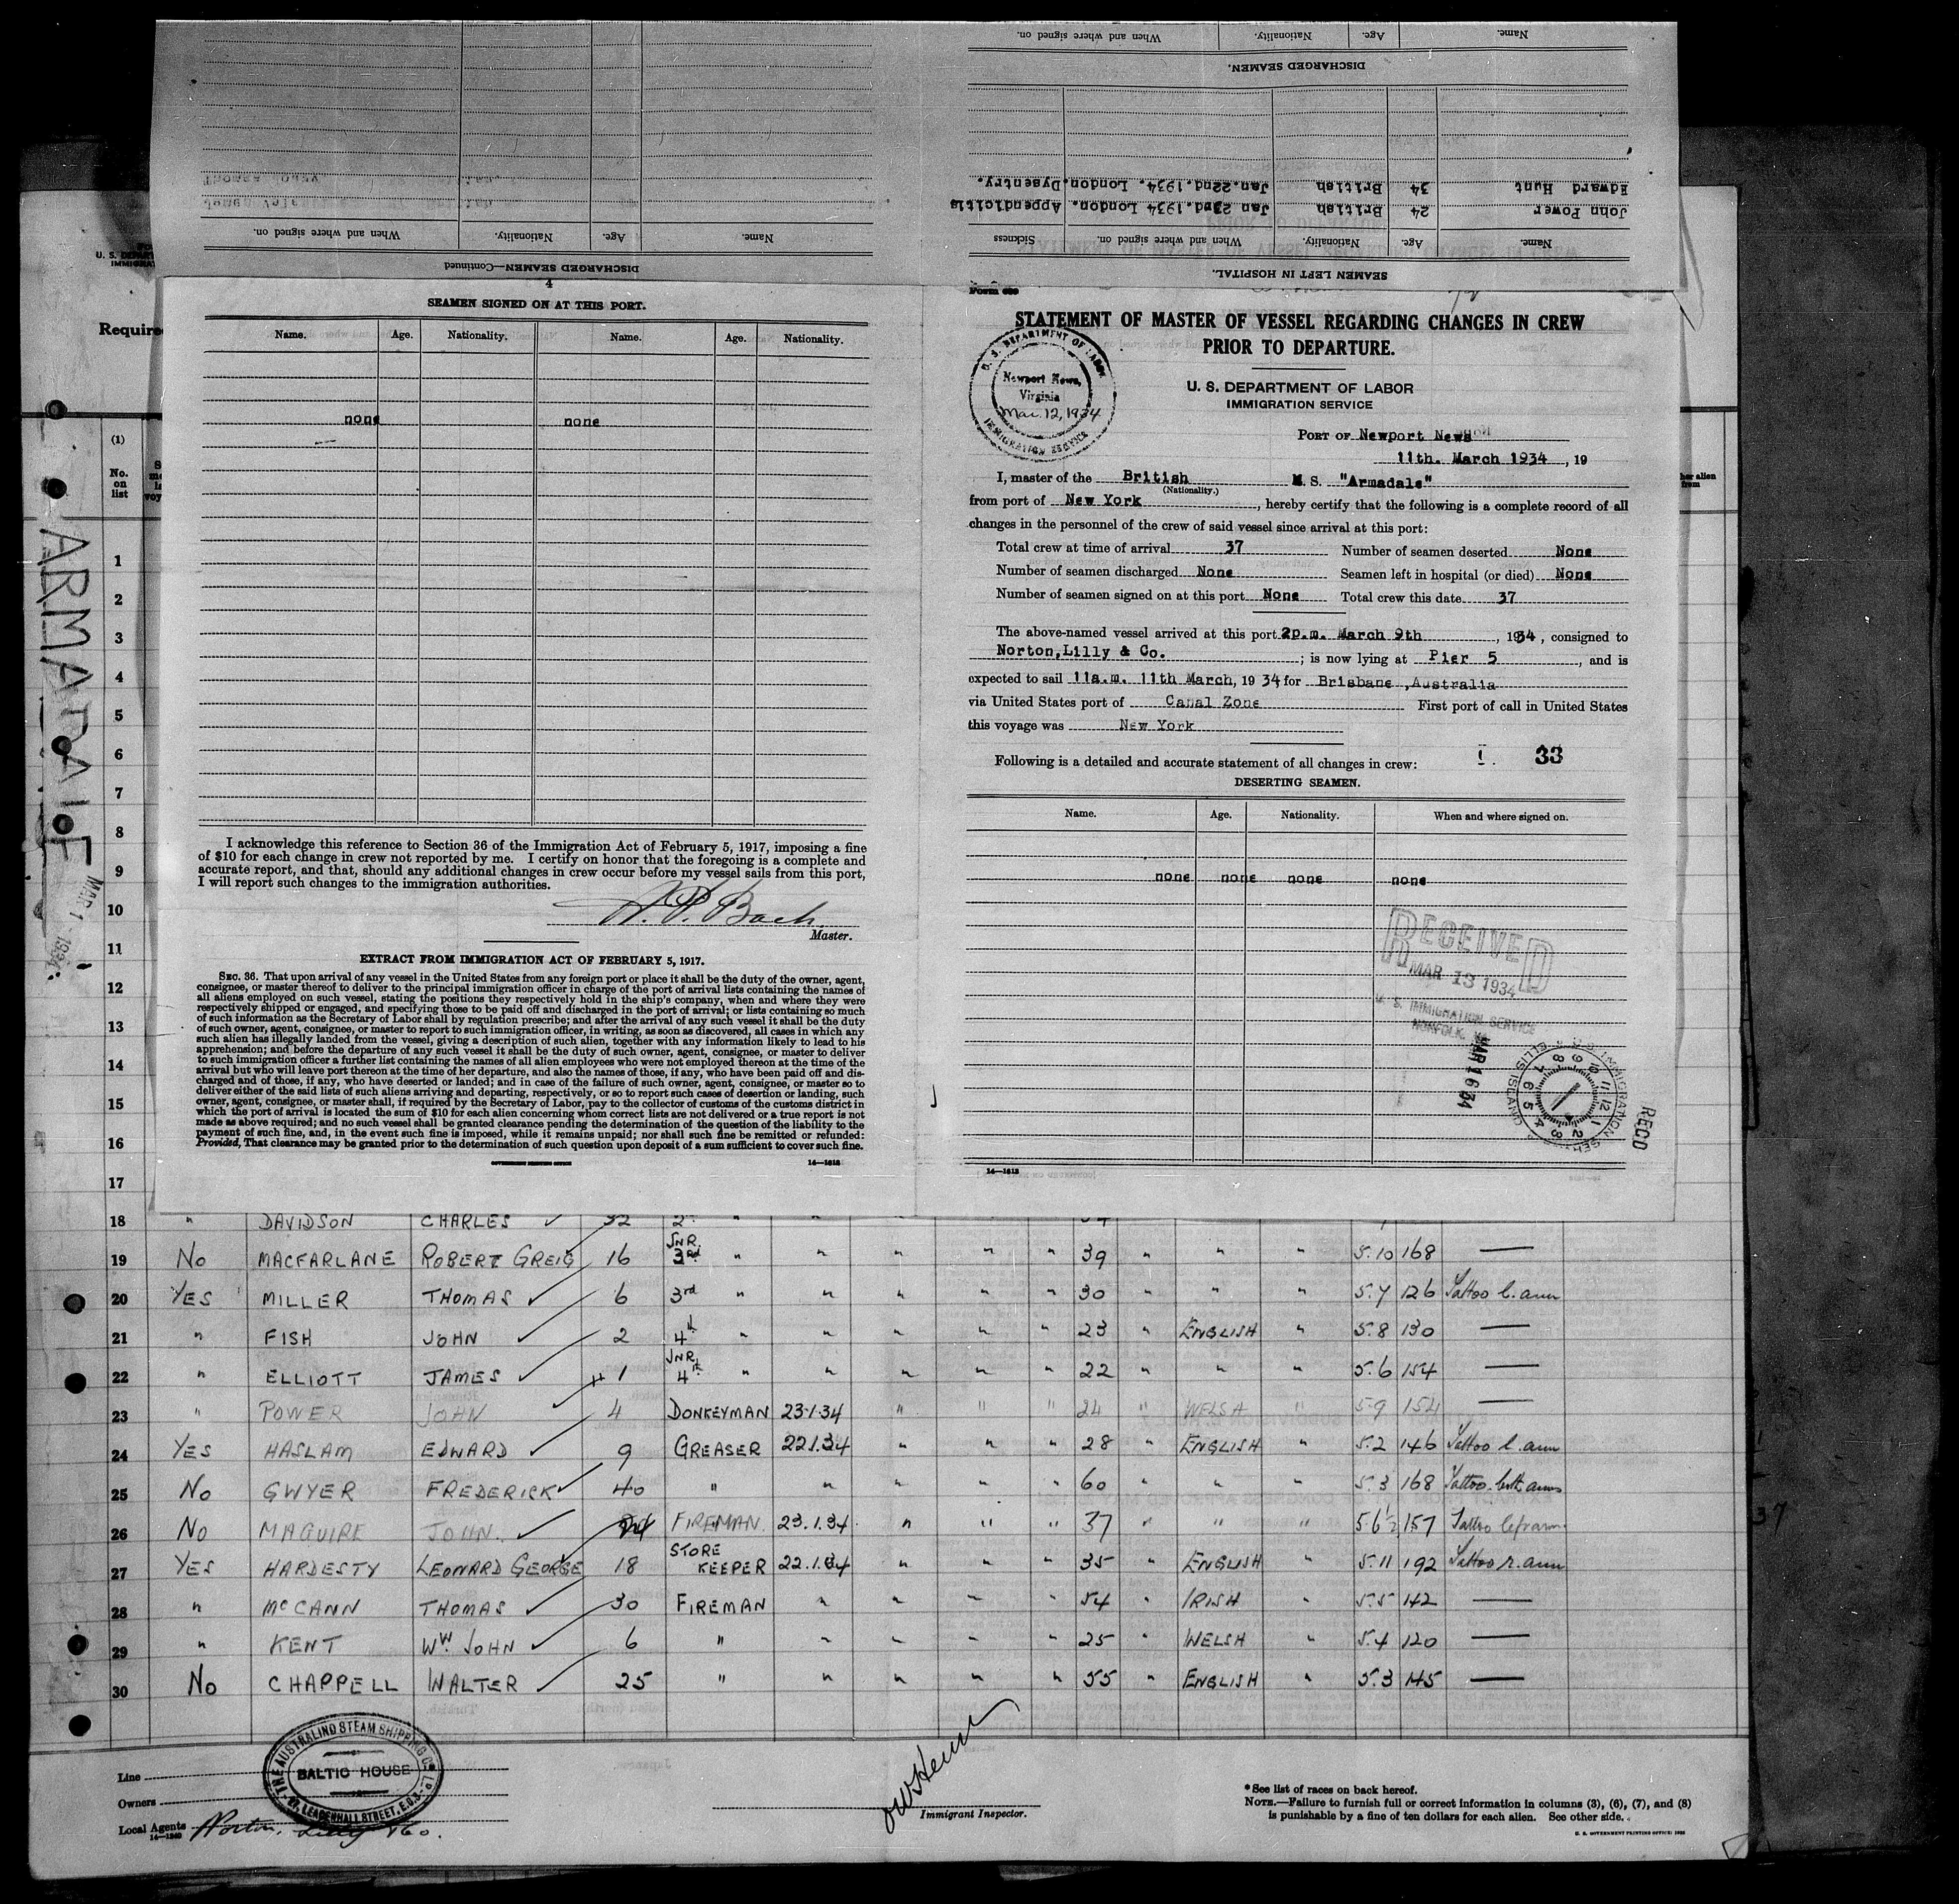 Name. Age. Nationality. When and where signed on.
DISCHARGED SEAMEN.
Edward Hunt 34 British Jan.22nd.1934. London. Dysentry.
John Power 24 British Jan 23rd 1934 London. Appendicitis
Name. Age. Nationality. When and where signed on. Sickness
SEAMEN LEFT IN HOSPITAL.
Name. Age. Nationality. When and where signed on.
DISCHARGED SEAMEN—Continued
4
SEAMEN SIGNED ON AT THIS PORT.
Name. Age. Nationality. Name. Age. Nationality.
none none
I acknowledge this reference to Section 36 of the Immigration Act of February 5, 1917, imposing a fine
of $10 for each change in crew not reported by me. I certify on honor that the foregoing is a complete and
accurate report, and that, should any additional changes in crew occur before my vessel sails from this port,
I will report such changes to the immigration authorities.
Bach
Master.
EXTRACT FROM IMMIGRATION ACT OF FEBRUARY 5, 1917.
SEC. 36. That upon arrival of any vessel in the United States from any foreign port or place it shall be the duty of the owner, agent,
consignee, or master thereof to deliver to the principal immigration officer in charge of the port of arrival lists containing the names of
all aliens employed on such vessel, stating the positions they respectively hold in the ship's company, when and where they were
respectively shipped or engaged, and specifying those to be paid off and discharged in the port of arrival; or lists containing so much
of such information as the Secretary of Labor shall by regulation prescribe; and after the arrival of any such vessel it shall be the duty
of such owner, agent, consignee, or master to report to such immigration officer, in writing, as soon as discovered, all cases in which any
such alien has illegally landed from the vessel, giving a description of such alien, together with any information likely to lead to his
apprehension; and before the departure of any such vessel it shall be the duty of such owner, agent, consignee, or master to deliver
to such immigration officer a further list containing the names of all alien employees who were not employed thereon at the time of the
arrival but who will leave port thereon at the time of her departure, and also the names of those, if any, who have been paid off and dis-
charged and of those, if any, who have deserted or landed; and in case of the failure of such owner, agent, consignee, or master so to
deliver either of the said lists of such aliens arriving and departing, respectively, or so to report such cases of desertion or landing, such
owner, agent, consignee, or master shall, if required by the Secretary of Labor, pay to the collector of customs of the customs district in
which the port of arrival is located the sum of $10 for each alien concerning whom correct lists are not delivered or a true report is not
made as above required; and no such vessel shall be granted clearance pending the determination of the question of the liability to the
payment of such fine, and, in the event such fine is imposed, while it remains unpaid; nor shall such fine be remitted or refunded:
Provided, That clearance may be granted prior to the determination of such question upon deposit of a sum sufficient to cover such fine.
GOVERNMENT PRINTING OFFICE 14—1613
STATEMENT OF MASTER OF VESSEL REGARDING CHANGES IN CREW
PRIOR TO DEPARTURE.
U. S. DEPARTMENT OF LABOR
IMMIGRATION SERVICE
U. S. DEPARTMENT OF LABOR
Newport News,
Virginia
Mar. 12, 1934
IMMIGRATION SERVICE
PORT OF Newport News
11th. March 1934, 19
I, master of the British M.S. "Armadale"
(Nationality.)
from port of New York, hereby certify that the following is a complete record of all
changes in the personnel of the crew of said vessel since arrival at this port:
Total crew at time of arrival 37 Number of seamen deserted None
Number of seamen discharged None Seamen left in hospital (or died) None
Number of seamen signed on at this port None Total crew this date 37
The above-named vessel arrived at this port 2p.m. March 9th, 1934, consigned to
Norton,Lilly & Co.; is now lying at Pier 5, and is
expected to sail 11a.m. 11th March, 1934 for Brisbane ,Australia
via United States port of Canal Zone First port of call in United States
this voyage was New York
33
Following is a detailed and accurate statement of all changes in crew:
DESERTING SEAMEN.
Name. Age. Nationality. When and where signed on.
none none none none
RECEIVED
MAR 13 1934
U. S. IMMIGRATION SERVICE
NORFOLK, VA.
MAR 16 34
RECD
IMMIGRATION SERVICE
ELLIS ISLAND
14—1613
Require
(1)
No. on list
ARMADALE
MAR 1 - 1934
1
2
3
4
5
6
7
8
9
10
11
12
13
14
15
16
17
18 " DAVIDSON CHARLES 32 2nd " " " " "
19 No MACFARLANE ROBERT GREIG 16 JNR. 3rd " " " " " 39 " " " 5.10 168 —
20 YES MILLER THOMAS 6 3rd " " " " " 30 " " " 5.7 126 Tattoo l. arm
21 " FISH JOHN 2 4th " " " " " 23 " ENGLISH " 5.8 130 —
22 " ELLIOTT JAMES 1 JNR. 4th " " " " " 22 " " " 5.6 154 —
23 " POWER JOHN 4 DONKEYMAN 23-1-34 " " " 24 " WELSH " 5-9 154 —
24 YES HASLAM EDWARD 9 GREASER 22.1.34 " " " 28 " ENGLISH " 5.2 146 Tattoo l. arm
25 No GWYER FREDERICK 40 " " " " " 60 " " " 5.3 168 Tattoo both arms
26 No MAGUIRE JOHN. 24 FIREMAN 23.1.34 " " " 37 " " " 5.6½ 157 Tattoo
27 YES HARDESTY LEONARD GEORGE 18 STORE KEEPER 22.1.34 " " " 35 " ENGLISH " 5.11 192 Tattoo r. arm
28 " McCANN THOMAS 30 FIREMAN " " " " 54 " IRISH " 5.5 142 —
29 " KENT Wm JOHN 6 " " " " " 25 " WELSH " 5.4 120 —
30 No CHAPPELL WALTER 25 " " " " " 55 " ENGLISH " 5.3 145 —
37
Line
Owners
Local Agents Norton, Lilly & Co.
14—1240
THE AUSTRALIND STEAM SHIPPING Co. LD.
BALTIC HOUSE
27, LEADENHALL STREET, E.C.3.
Immigrant Inspector.
*See list of races on back hereof.
NOTE.—Failure to furnish full or correct information in columns (3), (6), (7), and (8)
is punishable by a fine of ten dollars for each alien. See other side.
U. S. GOVERNMENT PRINTING OFFICE: